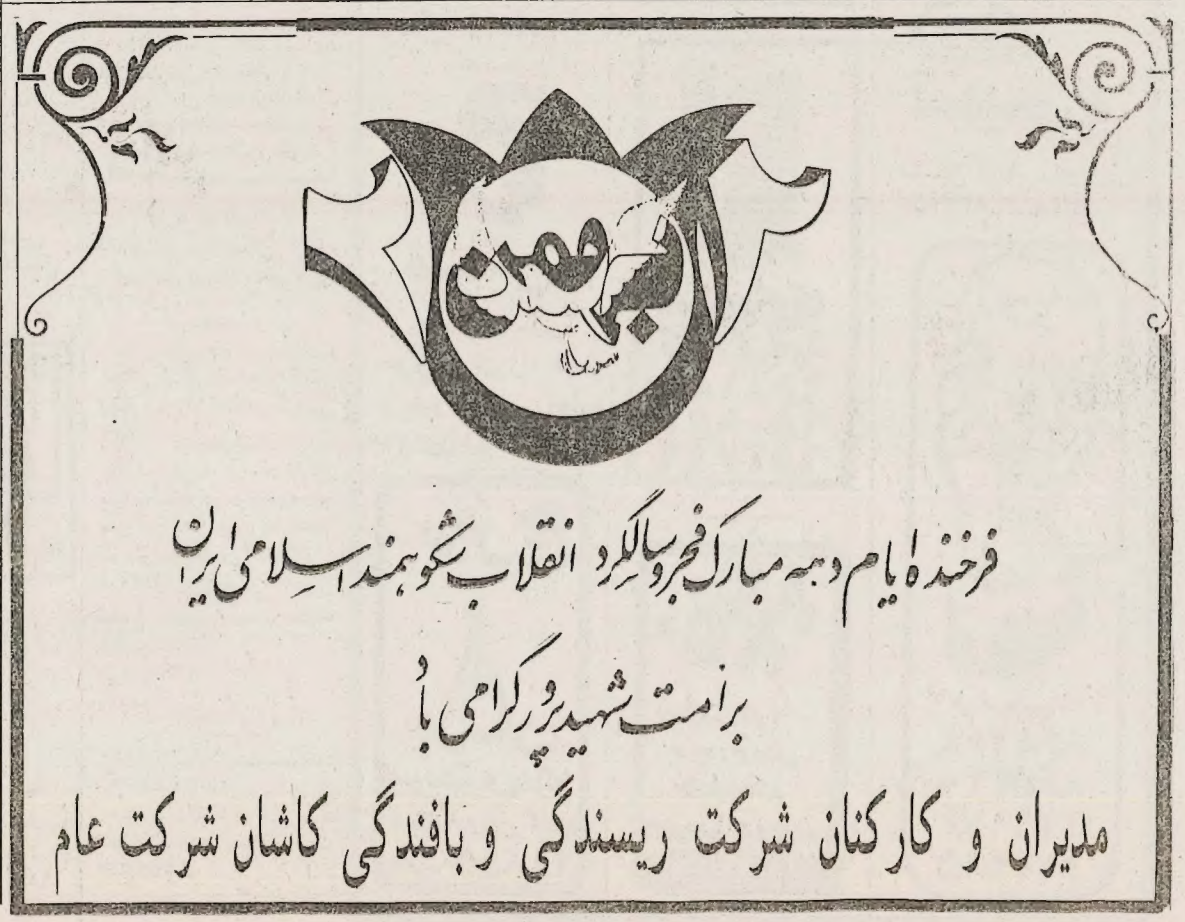 ۲۲ بهمن
فرخنده ایام دهه مبارک فجر و سالگرد انقلاب شکوهمند اسلامی ایران
بر امت شهیدپرور گرامی باد
مدیران و کارکنان شرکت ریسندگی و بافندگی کاشان شرکت عام